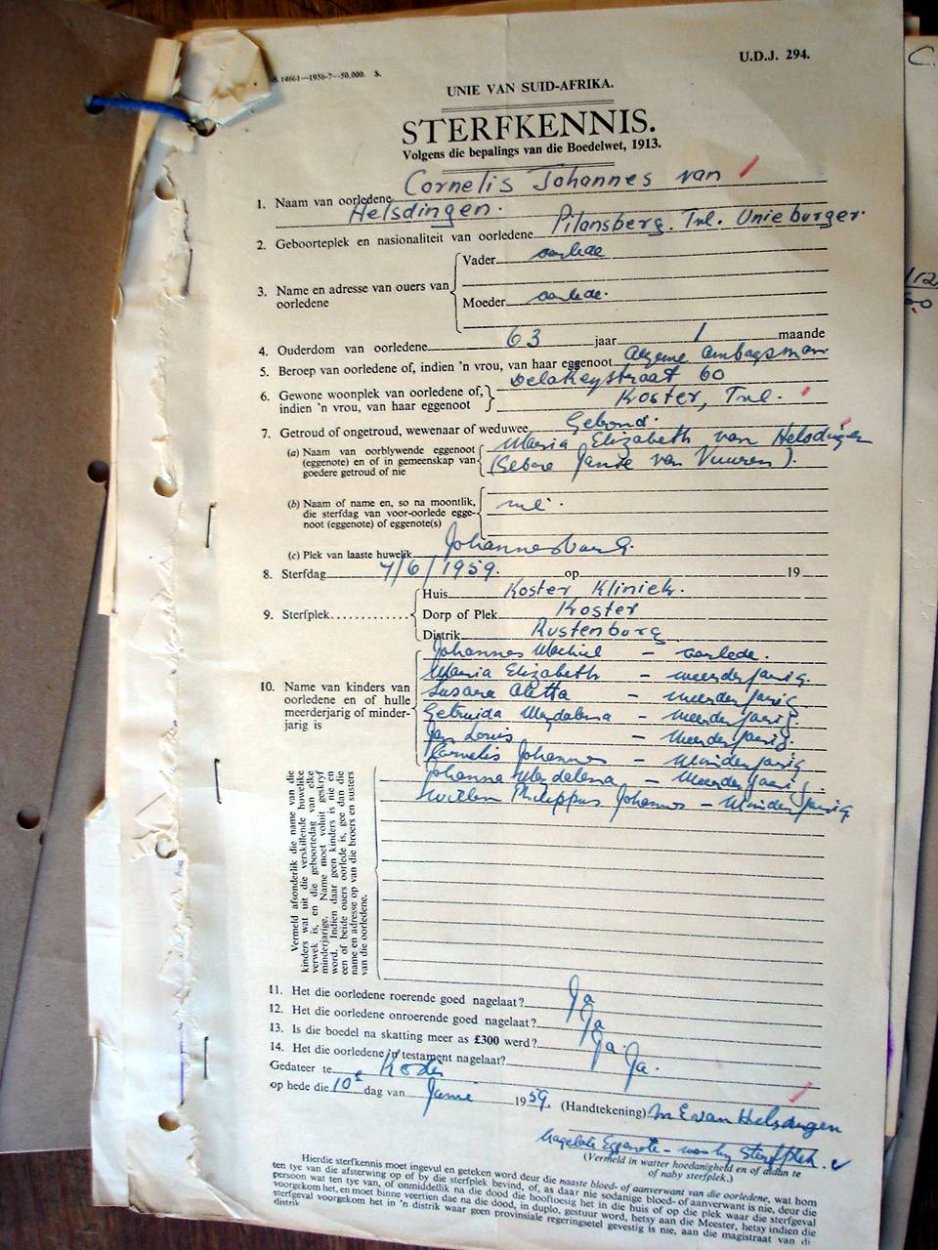 S. 14661—1956-7—50,000. S.
U.D.J. 294.
UNIE VAN SUID-AFRIKA.
STERFKENNIS.
Volgens die bepalings van die Boedelwet, 1913.
1. Naam van oorledene Cornelis Johannes van
Helsdingen.
2. Geboorteplek en nasionaliteit van oorledene Pilansberg. Tvl. Unieburger.
3. Name en adresse van ouers van oorledene
Vader oorlede
Moeder oorlede.
4. Ouderdom van oorledene 63 jaar 1 maande
5. Beroep van oorledene of, indien 'n vrou, van haar eggenoot Algemene ambagsman
6. Gewone woonplek van oorledene of, indien 'n vrou, van haar eggenoot
Delareystraat 60
Koster, Tvl.
7. Getroud of ongetroud, wewenaar of weduwee Getroud.
(a) Naam van oorblywende eggenoot (eggenote) en of in gemeenskap van goedere getroud of nie
Maria Elizabeth van Helsdingen
(Gebore Janse van Vuuren).
(b) Naam of name en, so na moontlik, die sterfdag van voor-oorlede eggenoot (eggenote) of eggenote(s)
nvt.
(c) Plek van laaste huwelik Johannesburg.
8. Sterfdag 7/6/1959. op 19
9. Sterfplek
Huis Koster Kliniek.
Dorp of Plek Koster
Distrik Rustenburg
10. Name van kinders van oorledene en of hulle meerderjarig of minderjarig is
Johannes Machiel – oorlede.
Maria Elizabeth – meerderjarig
Susara Aletta – meerderjarig
Getruida Magdalena – meerderjarig.
Jan Louis – meerderjarig.
Cornelis Johannes – minderjarig
Johanna Magdalena – meerderjarig.
Willem Philippus Johannes – minderjarig
Vermeld afsonderlik die name van die
kinders wat uit die verskillende huwelike
verwek is, en die geboortedag van elke
minderjarige. Name moet voluit geskryf
word. Indien daar geen kinders is nie en
een of beide ouers oorlede is, gee dan die
name en adresse op van die broers en susters
van die oorledene.
11. Het die oorledene roerende goed nagelaat? Ja
12. Het die oorledene onroerende goed nagelaat? Ja
13. Is die boedel na skatting meer as £300 werd? Ja.
14. Het die oorledene 'n testament nagelaat? Ja.
Gedateer te Koster
op hede die 10e dag van Junie 1959. (Handtekening) M E van Helsdingen
Nagelate Eggenote – naby sterfplek.
(Vermeld in watter hoedanigheid en of aldan te
of naby sterfplek.)
Hierdie sterfkennis moet ingevul en geteken word deur die naaste bloed- of aanverwant van die oorledene, wat hom
ten tye van die afsterwing op of by die sterfplek bevind, of, as daar nie sodanige bloed- of aanverwant is nie, deur die
persoon wat ten tye van, of onmiddellik na die dood die hooftoesig het in die huis of op die plek waar die sterfgeval
voorgekom het, en moet binne veertien dae na die dood, in duplo, gestuur word, hetsy aan die Meester, hetsy indien die
sterfgeval voorgekom het in 'n distrik waar geen provinsiale regeringsetel gevestig is nie, aan die magistraat van di
distrik